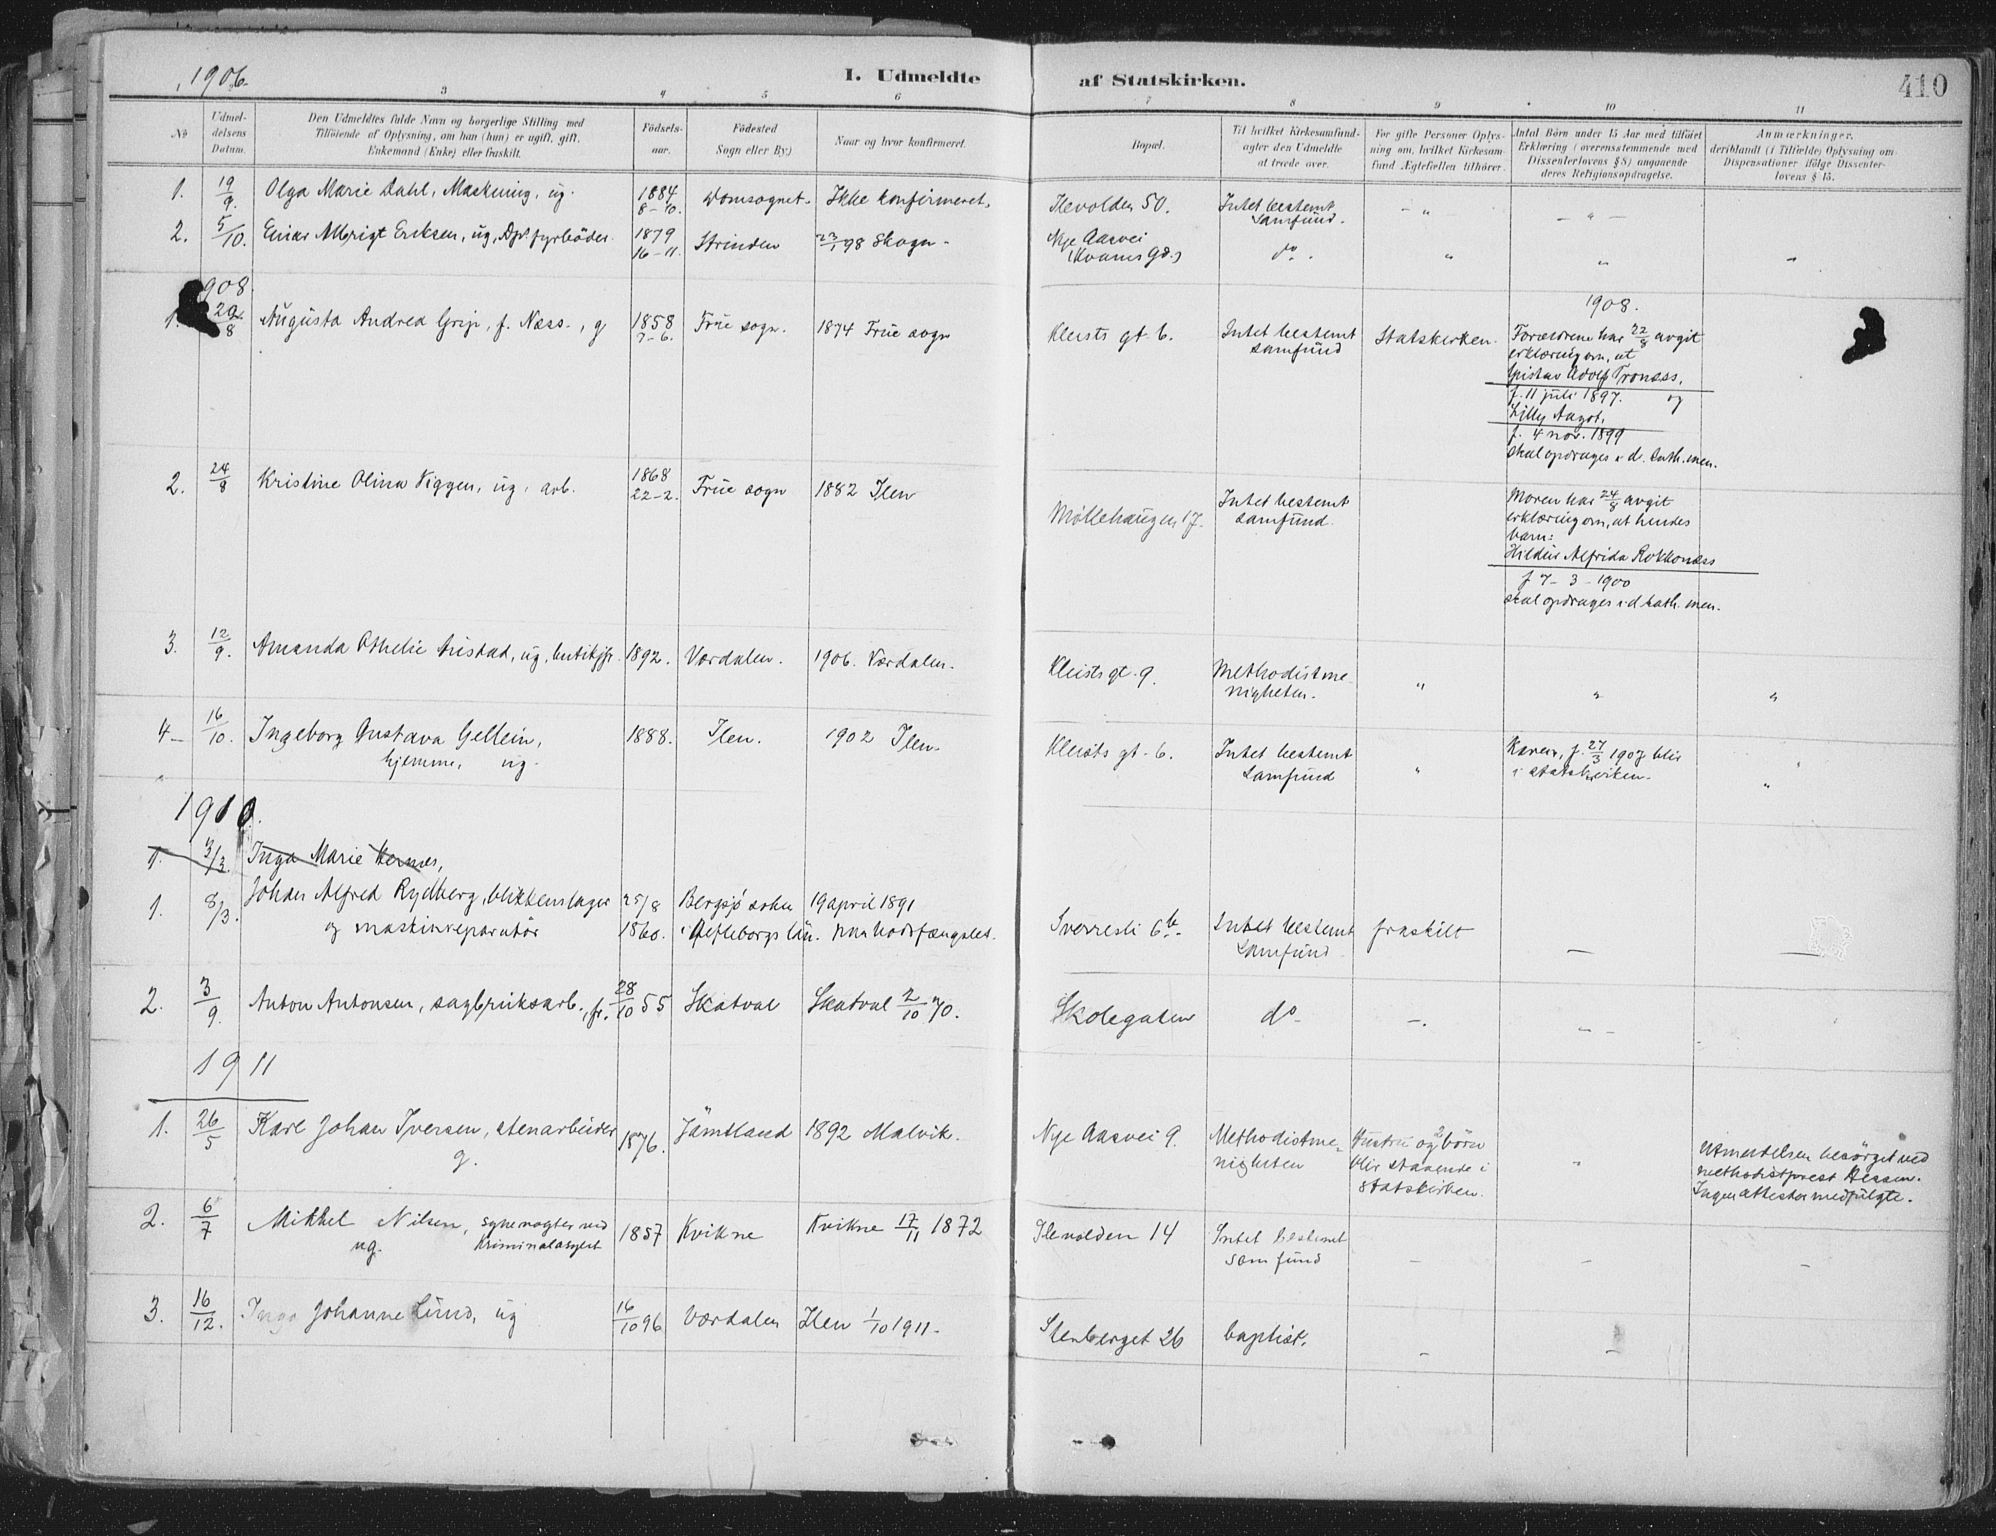 1906.
I. Udmeldte af Statskirken.
410
3 4 5 6 7 8 9 10 11
No
Udmel-
delsens
Datum.
Den Udmeldtes fulde Navn og borgerlige Stilling med
Tilføiende af Oplysning, om han (hun) er ugift, gift,
Enkemand (Enke) eller fraskilt.
Fødsels-
aar.
Fødested
(Sogn eller By.)
Naar og hvor konfirmeret.
Bopæl.
Til hvilket Kirkesamfund
agter den Udmeldte
at træde over.
For gifte Personer Oplys-
ning om, hvilket Kirkesam-
fund Ægtefællen tilhører.
Antal Børn under 15 Aar med tilføiet
Erklæring (overensstemmende med
Dissenterlovens § 8) angaaende
deres Religionsopdragelse.
Anmærkninger,
deriblandt (i Tilfælde) Oplysning om
Dispensationer ifølge Dissenter-
lovens § 15.
1. 19/9. Olga Marie Dahl, ug. 1884 8-10. Domsognet. Ikke konfirmeret. Ilevolden 50. Intet bestemt
Samfund. - " - - " -
2. 5/10. Einar Albrigt Eriksen, ug, fyrbøder. 1879 16-11. Strinden 23/1 98 Skogn. Nye Aasvei
(Kvams Gd.) do. " "
1908.
1908.
1. 20/8 Augusta Andrea Grip, f. Næss., g 1858 7-6. Frue sogn. 1874 Frue sogn Kleists gt. 6. Intet bestemt
samfund Statskirken. Forældrene har 22/8 avgit
erklæring om, at
Gustav Adolf Tronæss,
f. 11 juli 1897. og
Lilly Aagot,
f. 4 nov. 1899
skal opdrages i d. kath. men.
2. 24/8 Kristine Olina Viggen, ug, arb. 1868 22-2. Frue sogn 1882 Ilen Møllehaugen 17. Intet bestemt
samfund. Moren har 24/8 avgit
erklæring om, at hendes
barn:
Hildur Alfrida Rokkonæss
f 7-3-1900
skal opdrages i d kath. men.
3. 12/9. Amanda Othelie Austad, ug, butikjfr. 1892. Værdalen. 1906. Værdalen. Kleists gt. 9. Methodistme-
nigheten. " " "
4- 16/10. Ingeborg Gustava Gellein,
hjemme, ug. 1888. Ilen. 1902 Ilen. Kleists gt. 6. Intet bestemt
Samfund " Karen, f. 27/3 1907 blir
i statskirken. "
1910.
1. 3/3. Inga Marie
1. 8/3. Johan Alfred Rydberg, blikkenslager
og maskinreparatør 25/8 1860. Bergsjö sokn
i Gefleborgs län. 19 april 1891
Sverresli 6b. Intet bestemt
Samfund fraskilt — —
2. 3/9. Anton Antonsen, sagbruksarb., fr. 28/10 55 Skatval Skatval 2/10 70. Skolegaten do - -. - -
1911
1. 26/5 Karl Johan Iversen, stenarbeider
g. 1876. Jämtland 1892 Malvik. Nye Aasvei 9. Methodistme-
nigheten Hustru og 2 børn
blir staaende i
statskirken. " Utmeldelsen besørget ved
methodistprest
Ingen attester medfulgte.
2. 6/7 Mikkel Nilsen, sykevogter ved
ug. Kriminalasylet 1857 Kvikne Kvikne 17/11 1872 Ilevolden 14 Intet bestemt
samfund - - -
3. 16/12. Inga Johanne Lund, ug 16/10 96 Værdalen Ilen 1/10 1911. Stenberget 26 baptist. - -